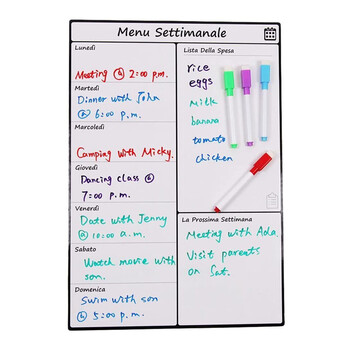 Menu Settimanale
Lunedì
Meeting @ 2:00 p.m.
Martedì
Dinner with John
@ 6:00 p.m.
Mercoledì
Camping with Micky.
Giovedì
Dancing class @
7:00 p.m.
Venerdì
Date with Jenny
@ 10:00 a.m.
Sabato
Watch movie with
son.
Domenica
Swim with son
@ 5:00 p.m.
Lista Della Spesa
rice
eggs
Milk
banana
tomato
chicken
La Prossima Settimana
Meeting with Ada.
Visit parents
on Sat.